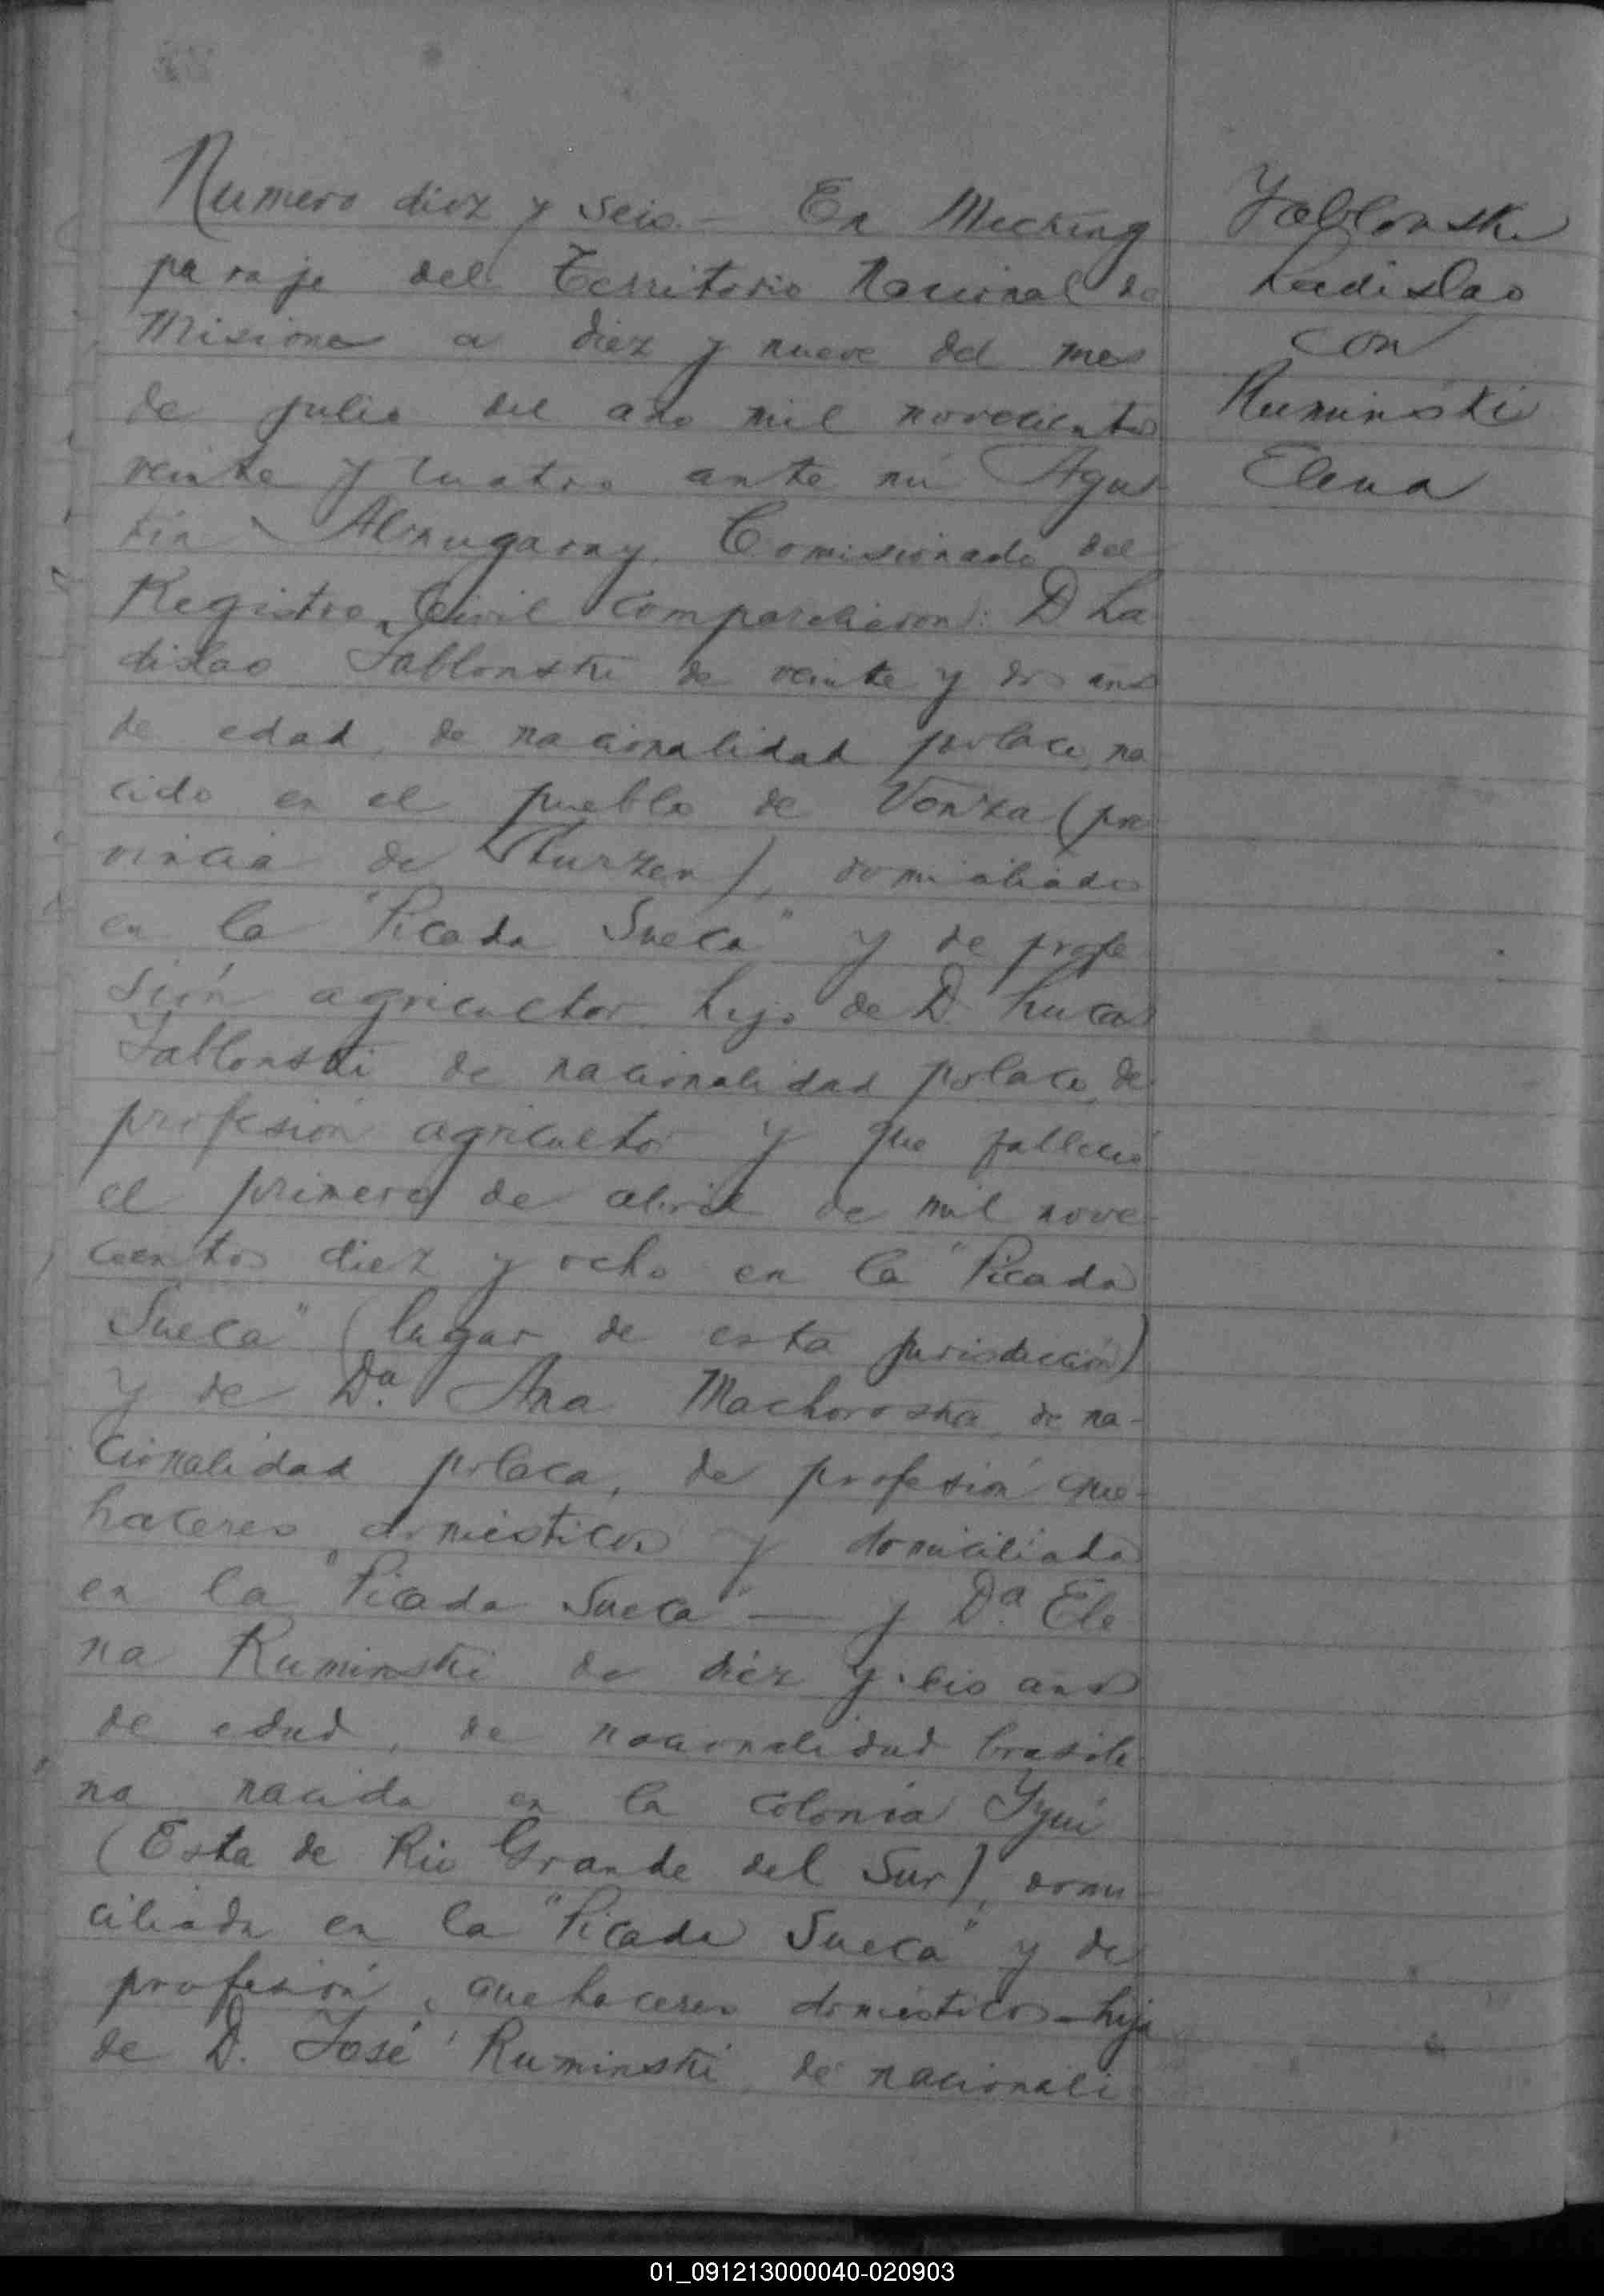 Numero diez y seis.- En Mecking
paraje del Territorio Nacional de
Misiones a diez y nueve del mes
de julio del año mil novecientos
veinte y cuatro ante mi Agus
tin Comisionado del
Registro Civil comparecieron: D La
dislao Jablonski de veinte y dos años
de edad, de nacionalidad polaca, na
cido en el pueblo de (pro
vincia de ), domiciliado
en la "Picada Sueca" y de profe
sión agricultor hijo de D. Lucas
Jablonski de nacionalidad polaca, de
profesión agricultor y que falleció
el primero de abril de mil nove
cientos diez y ocho en la "Picada
Sueca" (lugar de esta jurisdicción)
y de Da. Ana de na-
cionalidad polaca, de profesión que-
haceres domésticos y domiciliada
en la "Picada Sueca" — y Da. Ele
na Ruminski de diez y seis años
de edad, de nacionalidad brasile
na nacida en la colonia Yyui
(Esta de Rio Grande del Sur), domi-
ciliada en la "Picada Sueca" y de
profesión quehaceres domésticos - hija
de D. José Ruminski, de nacionali
Jablonski
Ladislao
con
Ruminski
Elena
01_091213000040-020903